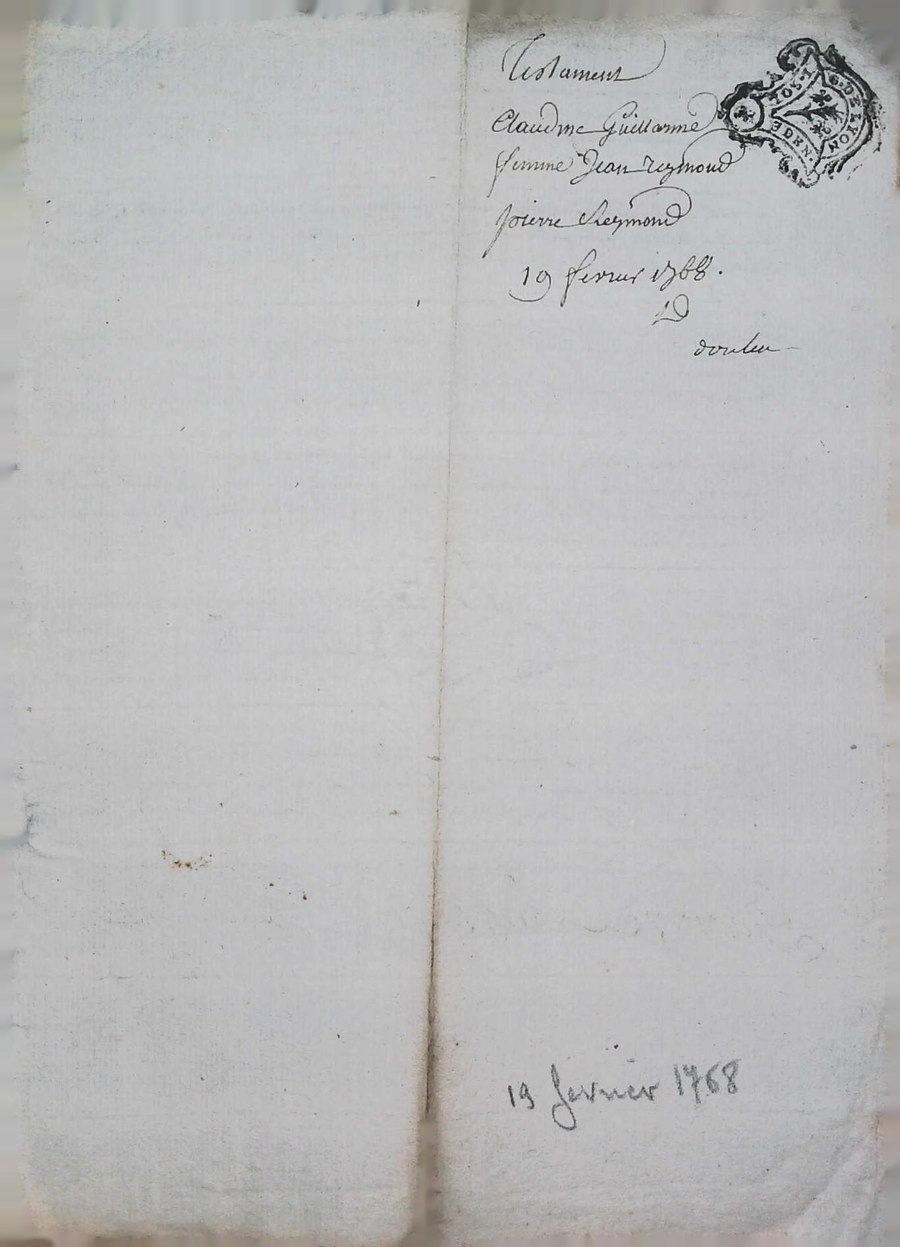 Testament
Claudine Guillaume
femme Jean reymond
pierre Reymond
19 fevrier 1768.
G. DE LYON
19 fevrier 1768